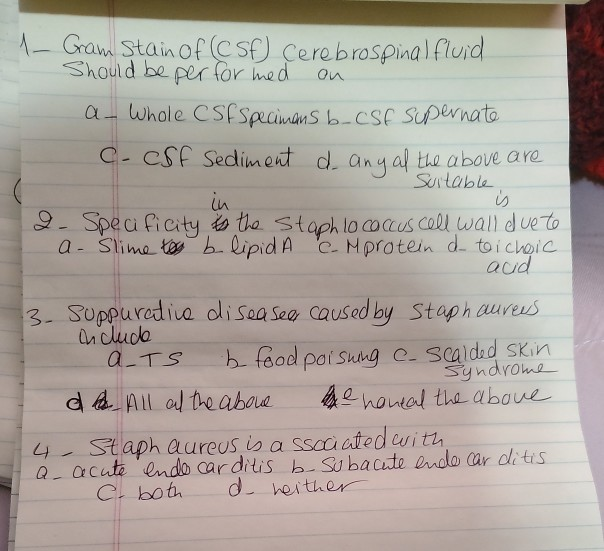 1- Gram Stain of (CSF) Cerebrospinal fluid
Should be performed on
a- Whole CSF Specimans b- CSF Supernate
C- CSF Sediment d- any of the above are
Suitable
2- Specificity in the Staphlococcus cell wall is due to
a- Slime b- lipid A C- M protein d- toichoic
acid
3- Suppurative diseases caused by Staph aureus
include
a- TS b- food poisung c- Scalded Skin
Syndrome
d- All of the above e- non of the above
4- Staph aureus is associated with
a- acute endocarditis b- Subacute endocarditis
C- both d- neither